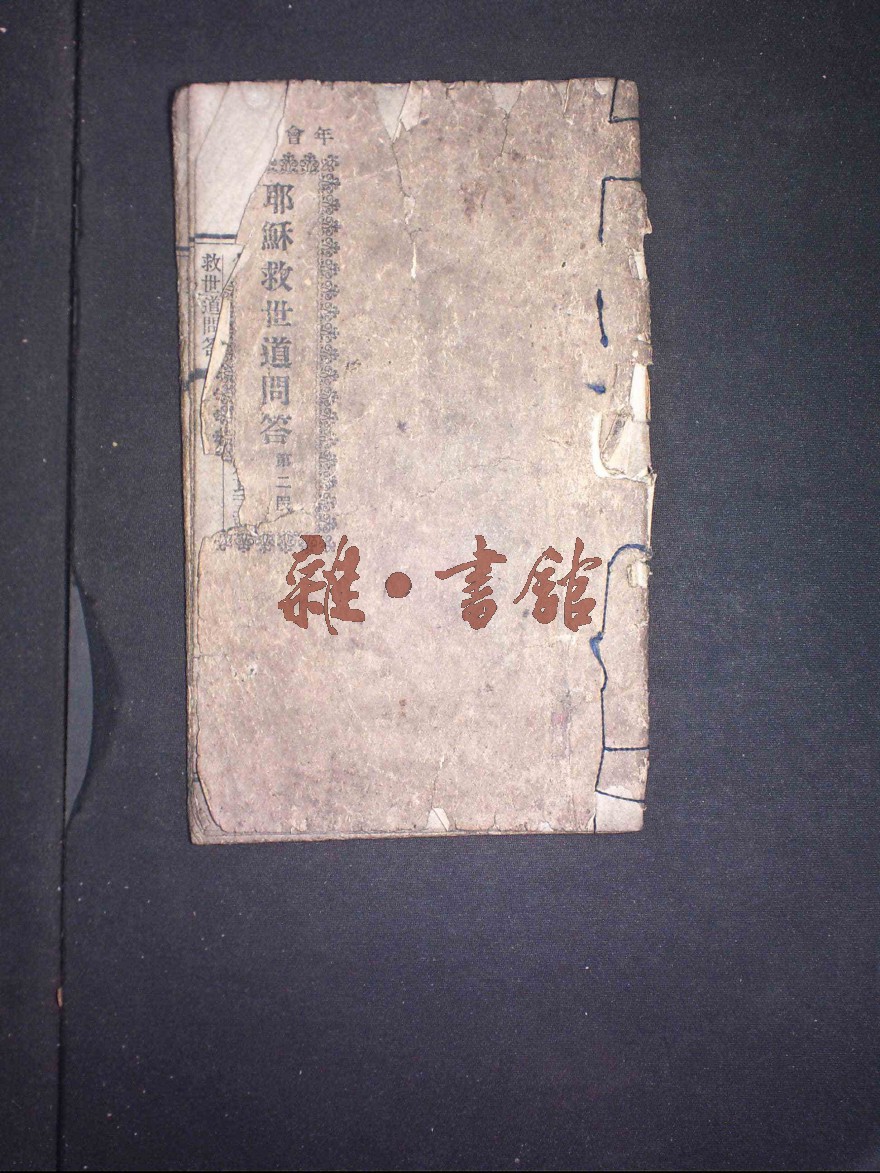 年會
耶穌救世道問答
第二
救世道問答
雜·書館